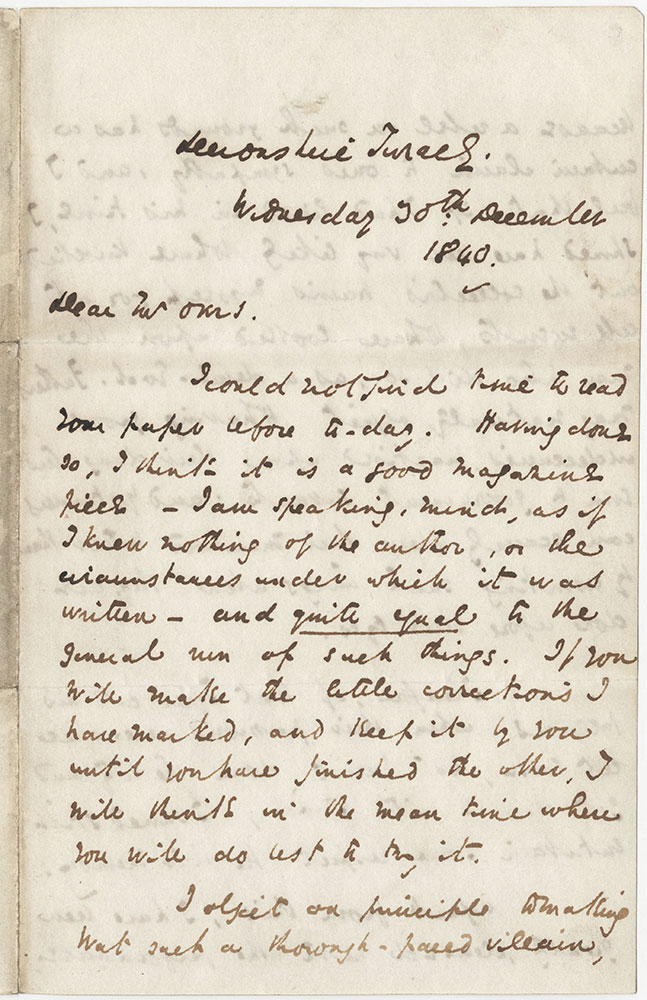 Devonshire Terrace.
Wednesday 30th. December
1840.
Dear Mr Overs.
I could not find time to read
your paper before to-day. Having done
so, I think it is a good magazine
piece — I am speaking, mind, as if
I knew nothing of the author, or the
circumstances under which it was
written — and quite equal to the
general run of such things. If you
will make the little corrections I
have marked, and keep it by you
until you have finished the other, I
will think in the mean time where
you will do best to try it.
I object on principle to making
Wat such a thorough-paced villain,